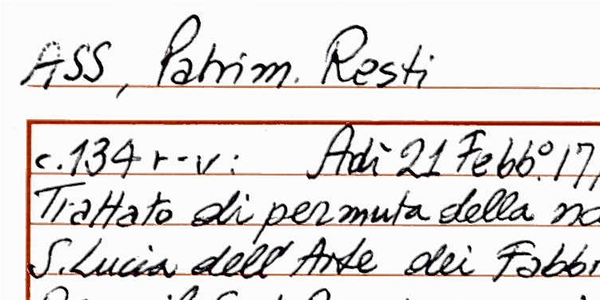 ASS, Patrim. Resti
c.134 r-v: Adì 21 Febb.º 17
Trattato di permuta della
S. Lucia dell'Arte dei Fabbr